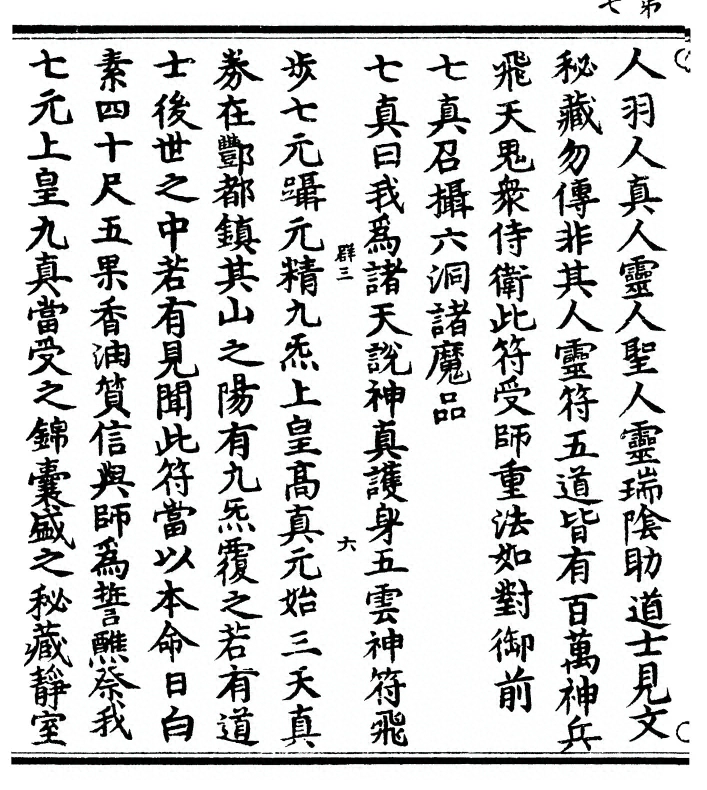 第
七
人羽人真人靈人聖人靈瑞陰助道士見文
秘藏勿傳非其人靈符五道皆有百萬神兵
飛天鬼衆侍衛此符受師重法如對御前
七真召攝六洞諸魔品
七真曰我爲諸天說神真護身五雲神符飛
群三
六
步七元躡元精九炁上皇高真元始三天真
券在酆都鎮其山之陽有九炁覆之若有道
士後世之中若有見聞此符當以本命日白
素四十尺五果香油質信與師爲誓醮祭我
七元上皇九真當受之錦囊盛之秘藏靜室